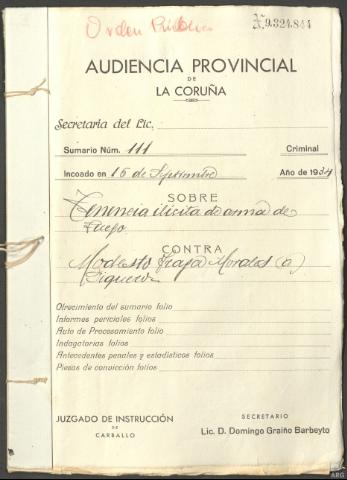 Orden Público
N.9.324.844
AUDIENCIA PROVINCIAL
DE
LA CORUÑA
Secretaría del Lic.
Sumario Núm. 111 Criminal
Incoado en 15 de Septiembre Año de 1934
SOBRE
Tenencia ilícita de arma de
fuego
CONTRA
Modesto Morales (a)
Ofrecimiento del sumario folio
Informes periciales folios
Auto de Procesamiento folio
Indagatorias folios
Antecedentes penales y estadísticos folios
Piezas de convicción folios
JUZGADO DE INSTRUCCIÓN
DE
CARBALLO
SECRETARIO
Lic. D. Domingo Graiño Barbeyto
ARG